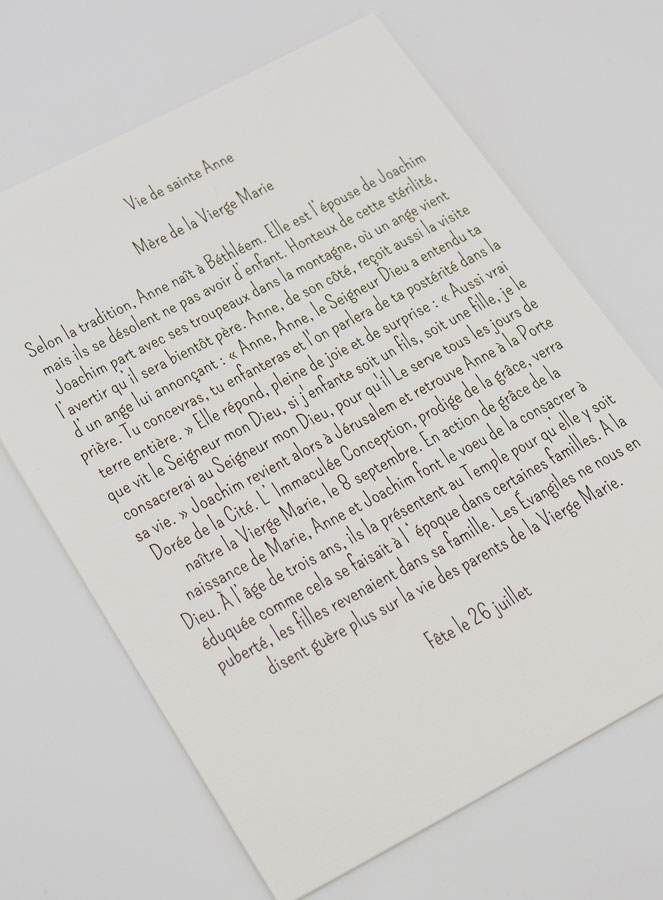 Vie de sainte Anne
Mère de la Vierge Marie
Selon la tradition, Anne naît à Béthléem. Elle est l'épouse de Joachim
mais ils se désolent ne pas avoir d'enfant. Honteux de cette stérilité,
Joachim part avec ses troupeaux dans la montagne, où un ange vient
l'avertir qu'il sera bientôt père. Anne, de son côté, reçoit aussi la visite
d'un ange lui annonçant : « Anne, Anne, le Seigneur Dieu a entendu ta
prière. Tu concevras, tu enfanteras et l'on parlera de ta postérité dans la
terre entière. » Elle répond, pleine de joie et de surprise : « Aussi vrai
que vit le Seigneur mon Dieu, si j'enfante soit un fils, soit une fille, je le
consacrerai au Seigneur mon Dieu, pour qu'il Le serve tous les jours de
sa vie. » Joachim revient alors à Jérusalem et retrouve Anne à la Porte
Dorée de la Cité. L'Immaculée Conception, prodige de la grâce, verra
naître la Vierge Marie, le 8 septembre. En action de grâce de la
naissance de Marie, Anne et Joachim font le voeu de la consacrer à
Dieu. À l'âge de trois ans, ils la présentent au Temple pour qu'elle y soit
éduquée comme cela se faisait à l'époque dans certaines familles. A la
puberté, les filles revenaient dans sa famille. Les Évangiles ne nous en
disent guère plus sur la vie des parents de la Vierge Marie.
Fête le 26 juillet